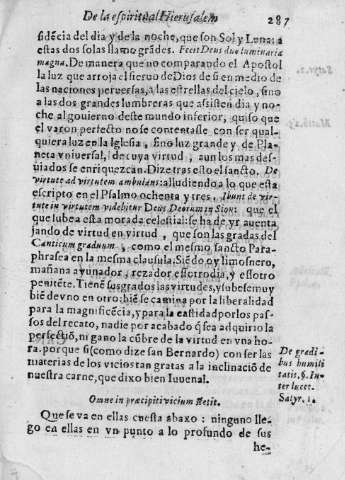 De la espiritual Hierusalem 287
sidẽcia del dia y de la noche, que son Sol y Luna: a
estas dos solas llamo grãdes. Fecit Deus duo luminaria
magna. De manera que no comparando el Apostol
la luz que arroja el siervo de Dios de si en medio de
las naciones perversas, a las estrellas del cielo, sino
a las dos grandes lumbreras que assisten dia y no-
che al gouierno deste mundo inferior, quiso que
el varon perfecto no se contentasse con ser qual-
quiera luz en la Iglesia, sino luz grande y de Pla-
neta vniuersal, de cuya virtud, aun los mas des-
uiados se enriquezcan. Dize tras esto el sancto, De
virtute ad virtutem ambulans: alludiendo a lo que esta
escripto en el Psalmo ochenta y tres, Ibunt de vir-
tute in virtutem videbitur Deus Deorum in Sion: que el
que lubea esta morada celestial: se ha de yr auenta
jando de virtud en virtud, que son las gradas del
Canticum graduum, como el mesmo sancto Para-
phrasea en la mesma clausula. Siẽdo oy limosnero,
mañana ayunador, rezador essotro dia, y essotro
penitẽte. Tienẽ sus grados las virtudes, y subese muy
biẽ de vno en otro: biẽ se camina por la liberalidad
para la magnificẽcia, y para la castidad por los pas-
sos del recato, nadie por acabado q̃ sea adquirio la
perfectiõ, ni gano la cũbre de la virtud en vna ho-
ra. porque si (como dize san Bernardo) con ser las
materias de los vicios tan gratas a la inclinaciõ de
nuestra carne, que dixo bien Iuuenal.
De gradi-
bus humili
tatis. §. In-
ter lucet.
Satyr. 1.
Omne in præcipiti vicium stetit.
Que se va en ellas cuesta abaxo: ninguno lle-
go en ellas en vn punto a lo profundo de sus
he-